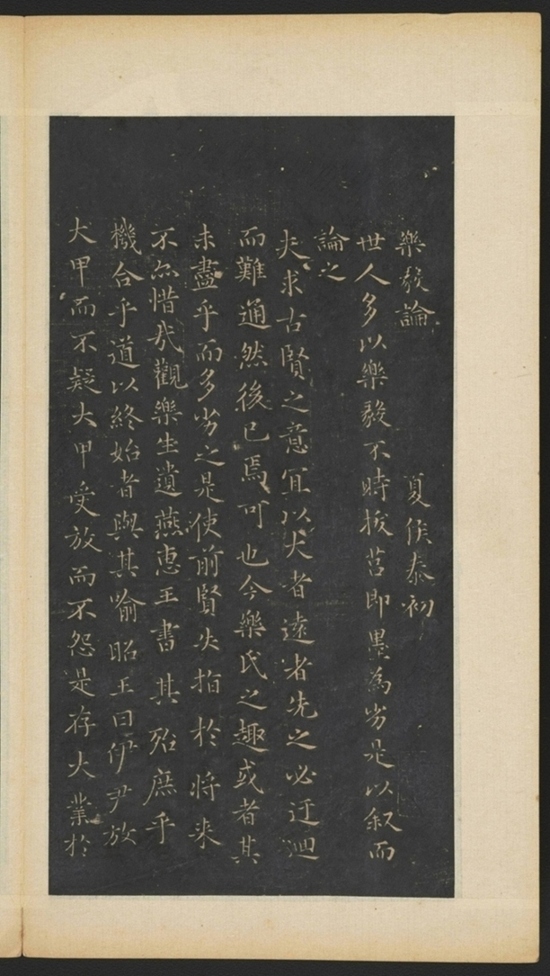 樂毅論　夏侯泰初
世人多以樂毅不時拔莒即墨為劣是以叙而
論之
夫求古賢之意宜以大者遠者先之必迂迴
而難通然後已焉可也今樂氏之趣或者其
未盡乎而多劣之是使前賢失指於將來
不亦惜哉觀樂生遺燕惠王書其殆庶乎
機合乎道以終始者與其喻昭王曰伊尹放
大甲而不疑大甲受放而不怨是存大業於